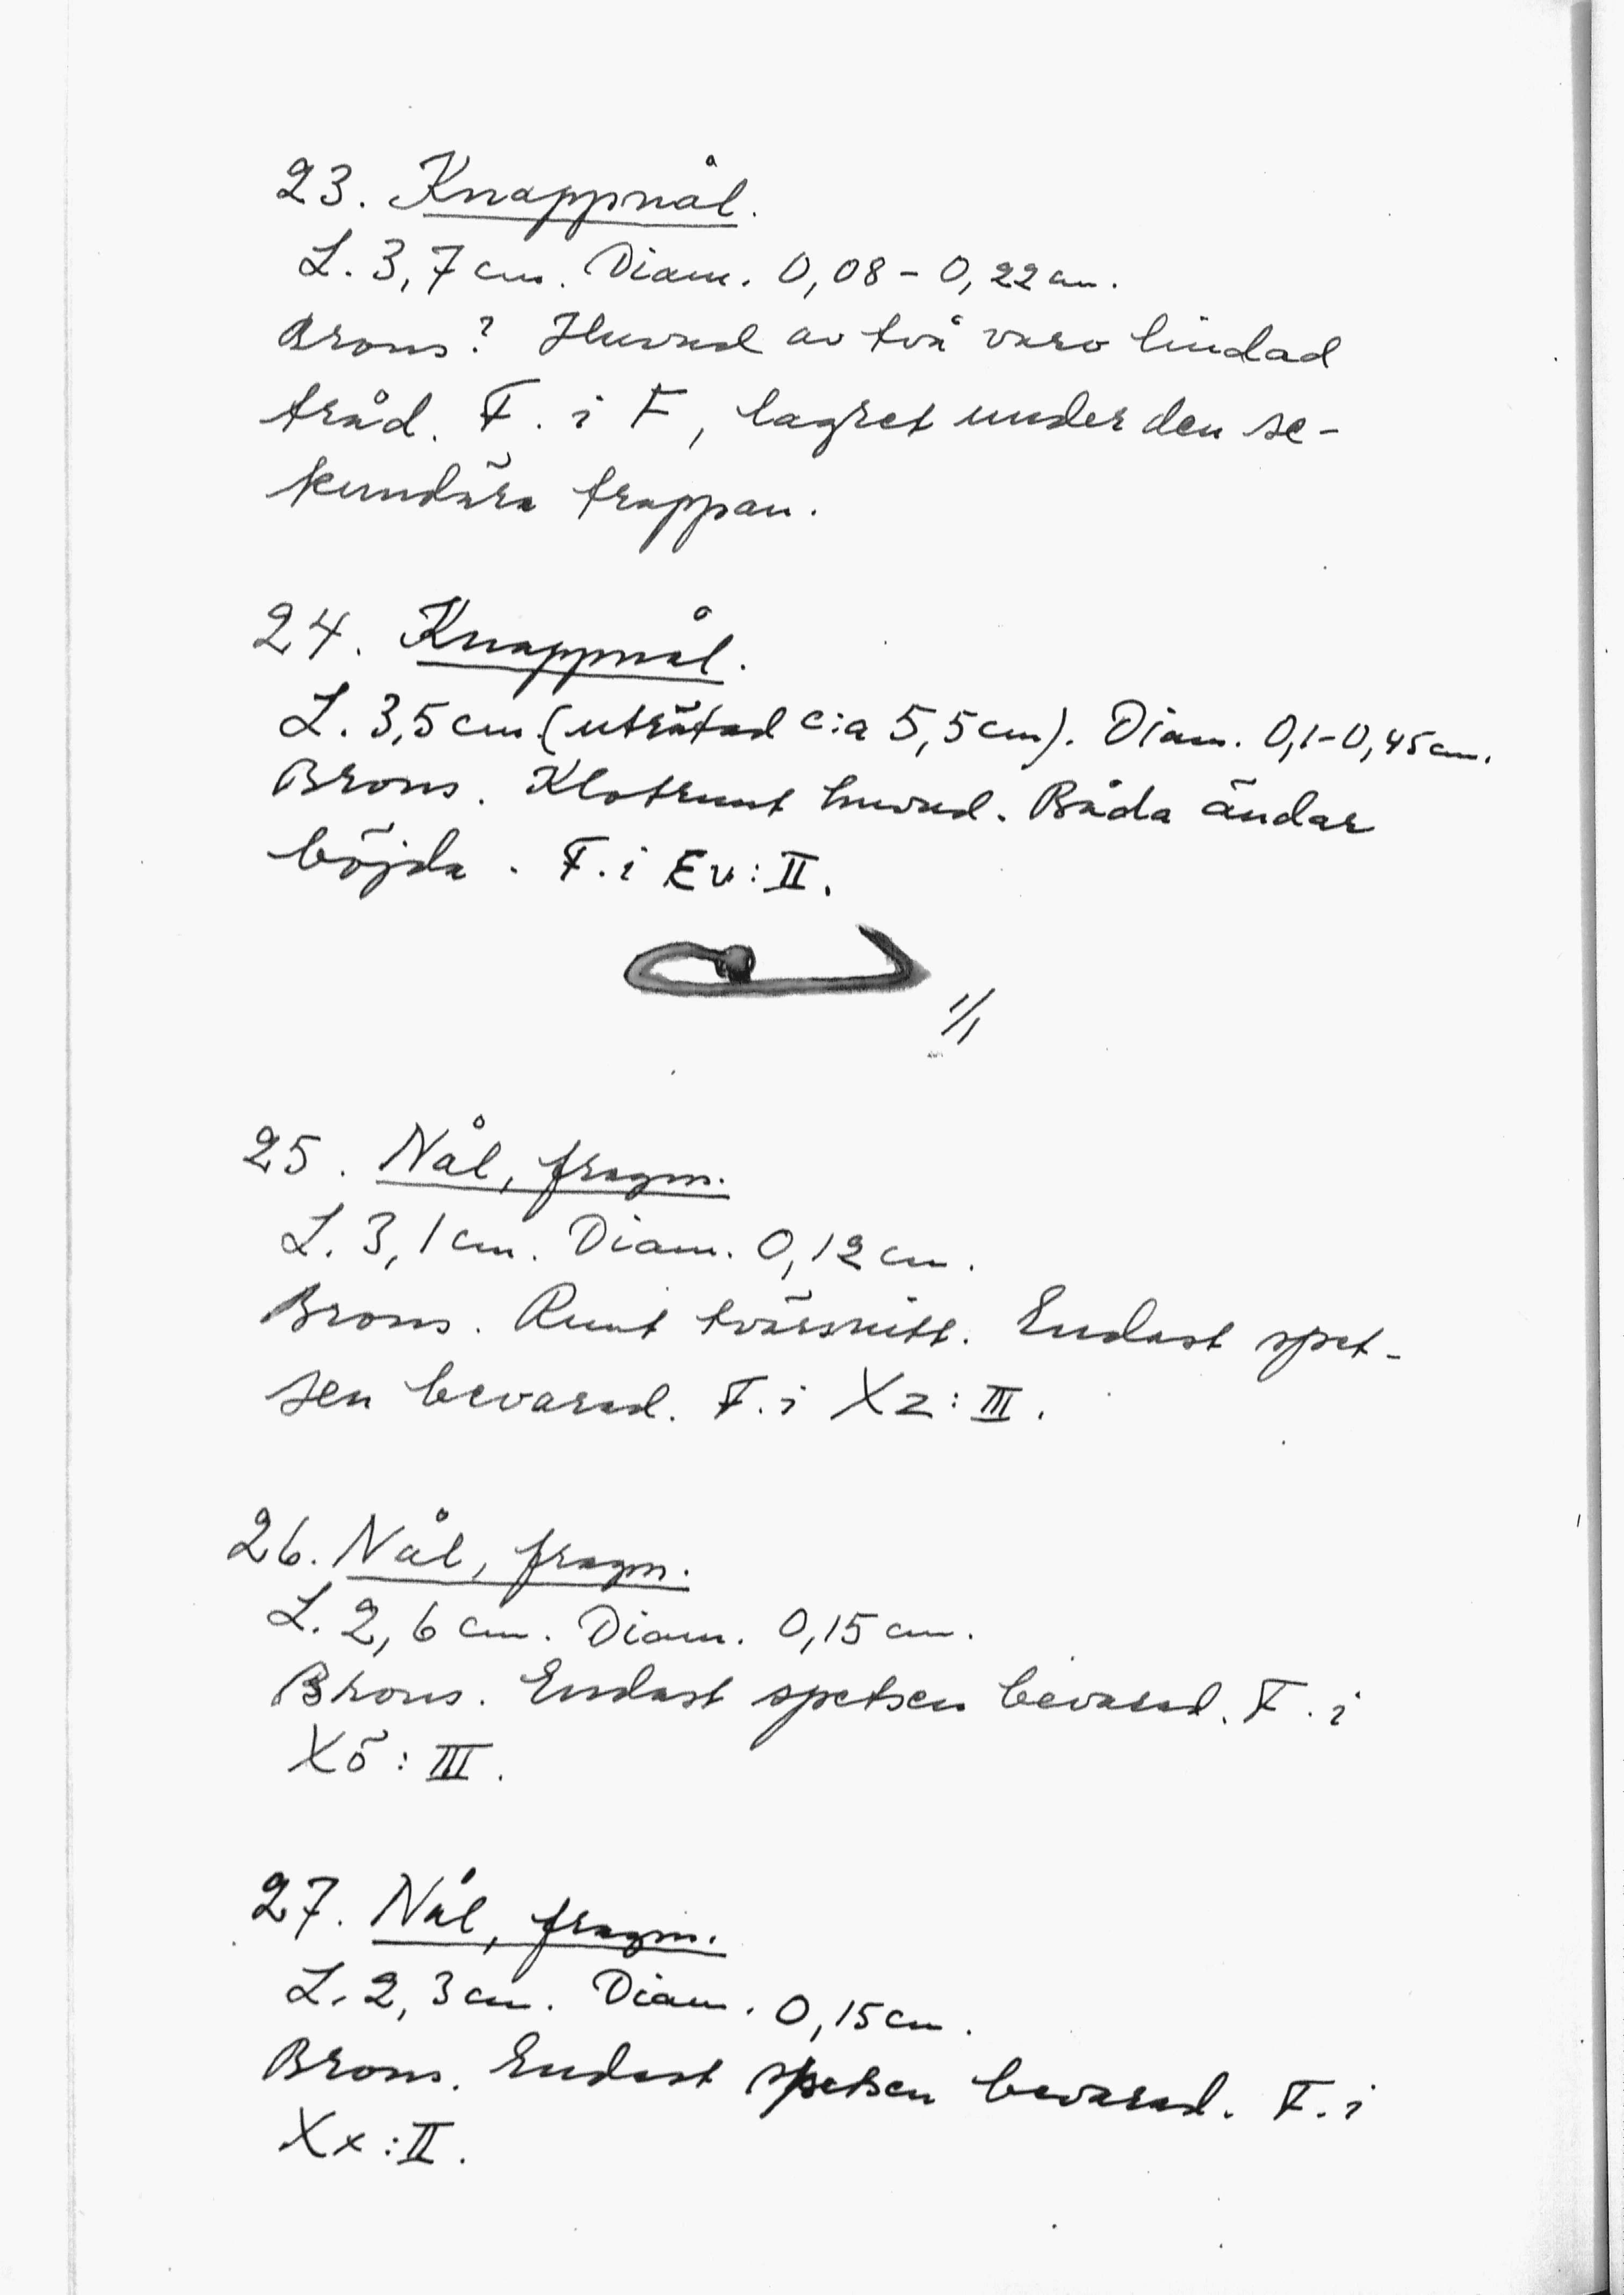 23. Knappnål.
L. 3,7 cm. Diam. 0,08 – 0,22 cm.
Brons? Huvud av två varv lindad
tråd. F. i F, lagret under den se-
kundära trappan.
24. Knappnål.
L. 3,5 cm (uträtad c:a 5,5 cm). Diam. 0,1–0,45 cm.
Brons. Klotrunt huvud. Båda ändar
böjda. F. i Ev:II.
1/1
25. Nål, fragm.
L. 3,1 cm. Diam. 0,12 cm.
Brons. Runt tvärsnitt. Endast spet-
sen bevarad. F. i Xz:III.
26. Nål, fragm.
L. 2,6 cm. Diam. 0,15 cm.
Brons. Endast spetsen bevarad. F. i
Xö:III.
27. Nål, fragm.
L. 2,3 cm. Diam. 0,15 cm.
Brons. Endast spetsen bevarad. F. i
Xx:II.